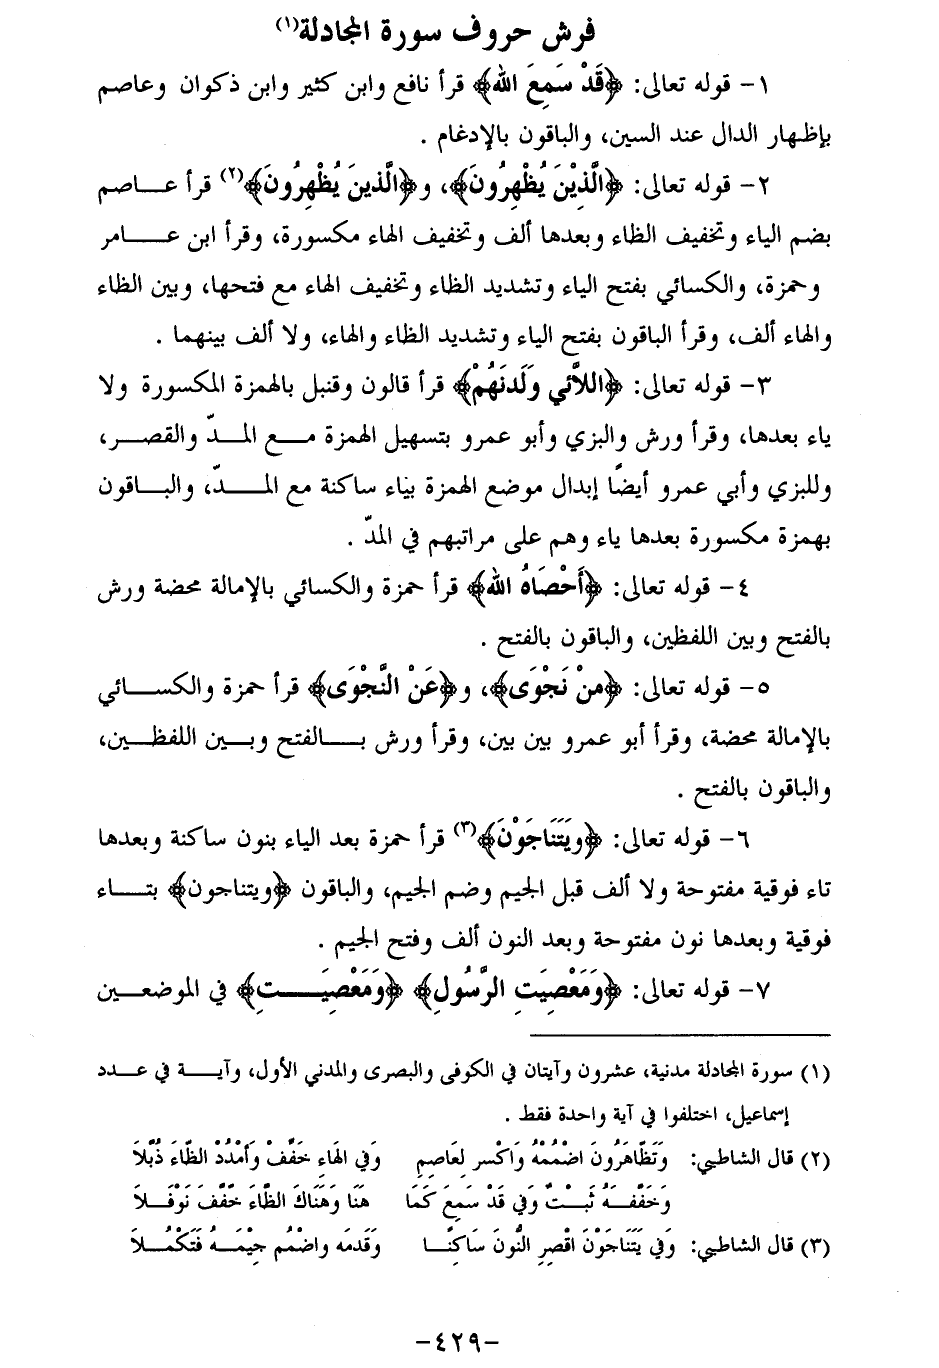 فرش حروف سورة المجادلة(١)
١- قوله تعالى: ﴿قَدْ سَمِعَ الله﴾ قرأ نافع وابن كثير وابن ذكوان وعاصم
بإظهار الدال عند السين، والباقون بالإدغام .
٢- قوله تعالى: ﴿الَّذِيْنَ يُظْهِرُونَ﴾، و﴿الَّذينَ يُظْهِرُونَ﴾(٢) قرأ عـاصم
بضم الياء وتخفيف الظاء وبعدها ألف وتخفيف الهاء مكسورة، وقرأ ابن عـامر
وحمزة، والكسائي بفتح الياء وتشديد الظاء وتخفيف الهاء مع فتحها، وبين الظاء
والهاء ألف، وقرأ الباقون بفتح الياء وتشديد الظاء والهاء، ولا ألف بينهما .
٣- قوله تعالى: ﴿اللاَّئي وَلَدنَهُمْ﴾ قرأ قالون وقنبل بالهمزة المكسورة ولا
ياء بعدها، وقرأ ورش والبزي وأبو عمرو بتسهيل الهمزة مـع المـدّ والقصـر،
وللبزي وأبي عمرو أيضًا إبدال موضع الهمزة بياء ساكنة مع المـدّ، والبـاقون
بهمزة مكسورة بعدها ياء وهم على مراتبهم في المدّ .
٤- قوله تعالى: ﴿أَحْصَاهُ الله﴾ قرأ حمزة والكسائي بالإمالة محضة ورش
بالفتح وبين اللفظين، والباقون بالفتح .
٥- قوله تعالى: ﴿منْ نَجْوَى﴾، و﴿عَنْ النَّجْوَى﴾ قرأ حمزة والكسـائي
بالإمالة محضة، وقرأ أبو عمرو بين بين، وقرأ ورش بـالفتح وبـين اللفظـين،
والباقون بالفتح .
٦- قوله تعالى: ﴿ويَتَنَاجَوْنَ﴾(٣) قرأ حمزة بعد الياء بنون ساكنة وبعدها
تاء فوقية مفتوحة ولا ألف قبل الجيم وضم الجيم، والباقون ﴿ويتناجون﴾ بتـاء
فوقية وبعدها نون مفتوحة وبعد النون ألف وفتح الجيم .
٧- قوله تعالى: ﴿وَمَعْصِيَتِ الرَّسُولِ﴾ ﴿وَمَعْصِيَـتِ﴾ في الموضعـين
(١) سورة المجادلة مدنية، عشرون وآيتان في الكوفى والبصرى والمدني الأول، وآيـة في عـدد
إسماعيل، اختلفوا في آية واحدة فقط .
(٢) قال الشاطبي: وَتَظَّاهَرُونَ اضْمُمْهُ وَاكْسر لِعَاصِمِ وَفي الهَاءِ خَفِّفْ وأَمْدُدْ الظَّاءَ ذُبَّلاَ
وَخَفَّفَـهُ ثَبْـتٌ وَفي قَدْ سَمِعَ كَمَا هَنَا وَهَنَاكَ الظَّاءَ خَفَّفَ نَوْفَـلاَ
(٣) قال الشاطبي: وَفي يَتَنَاجَوْنَ اقْصِرِ النُّونَ سَاكِنًـا وَقَدمَه واضْمُم جِيْمَـهُ فَتَكْمُـلاَ
-٤٢٩-